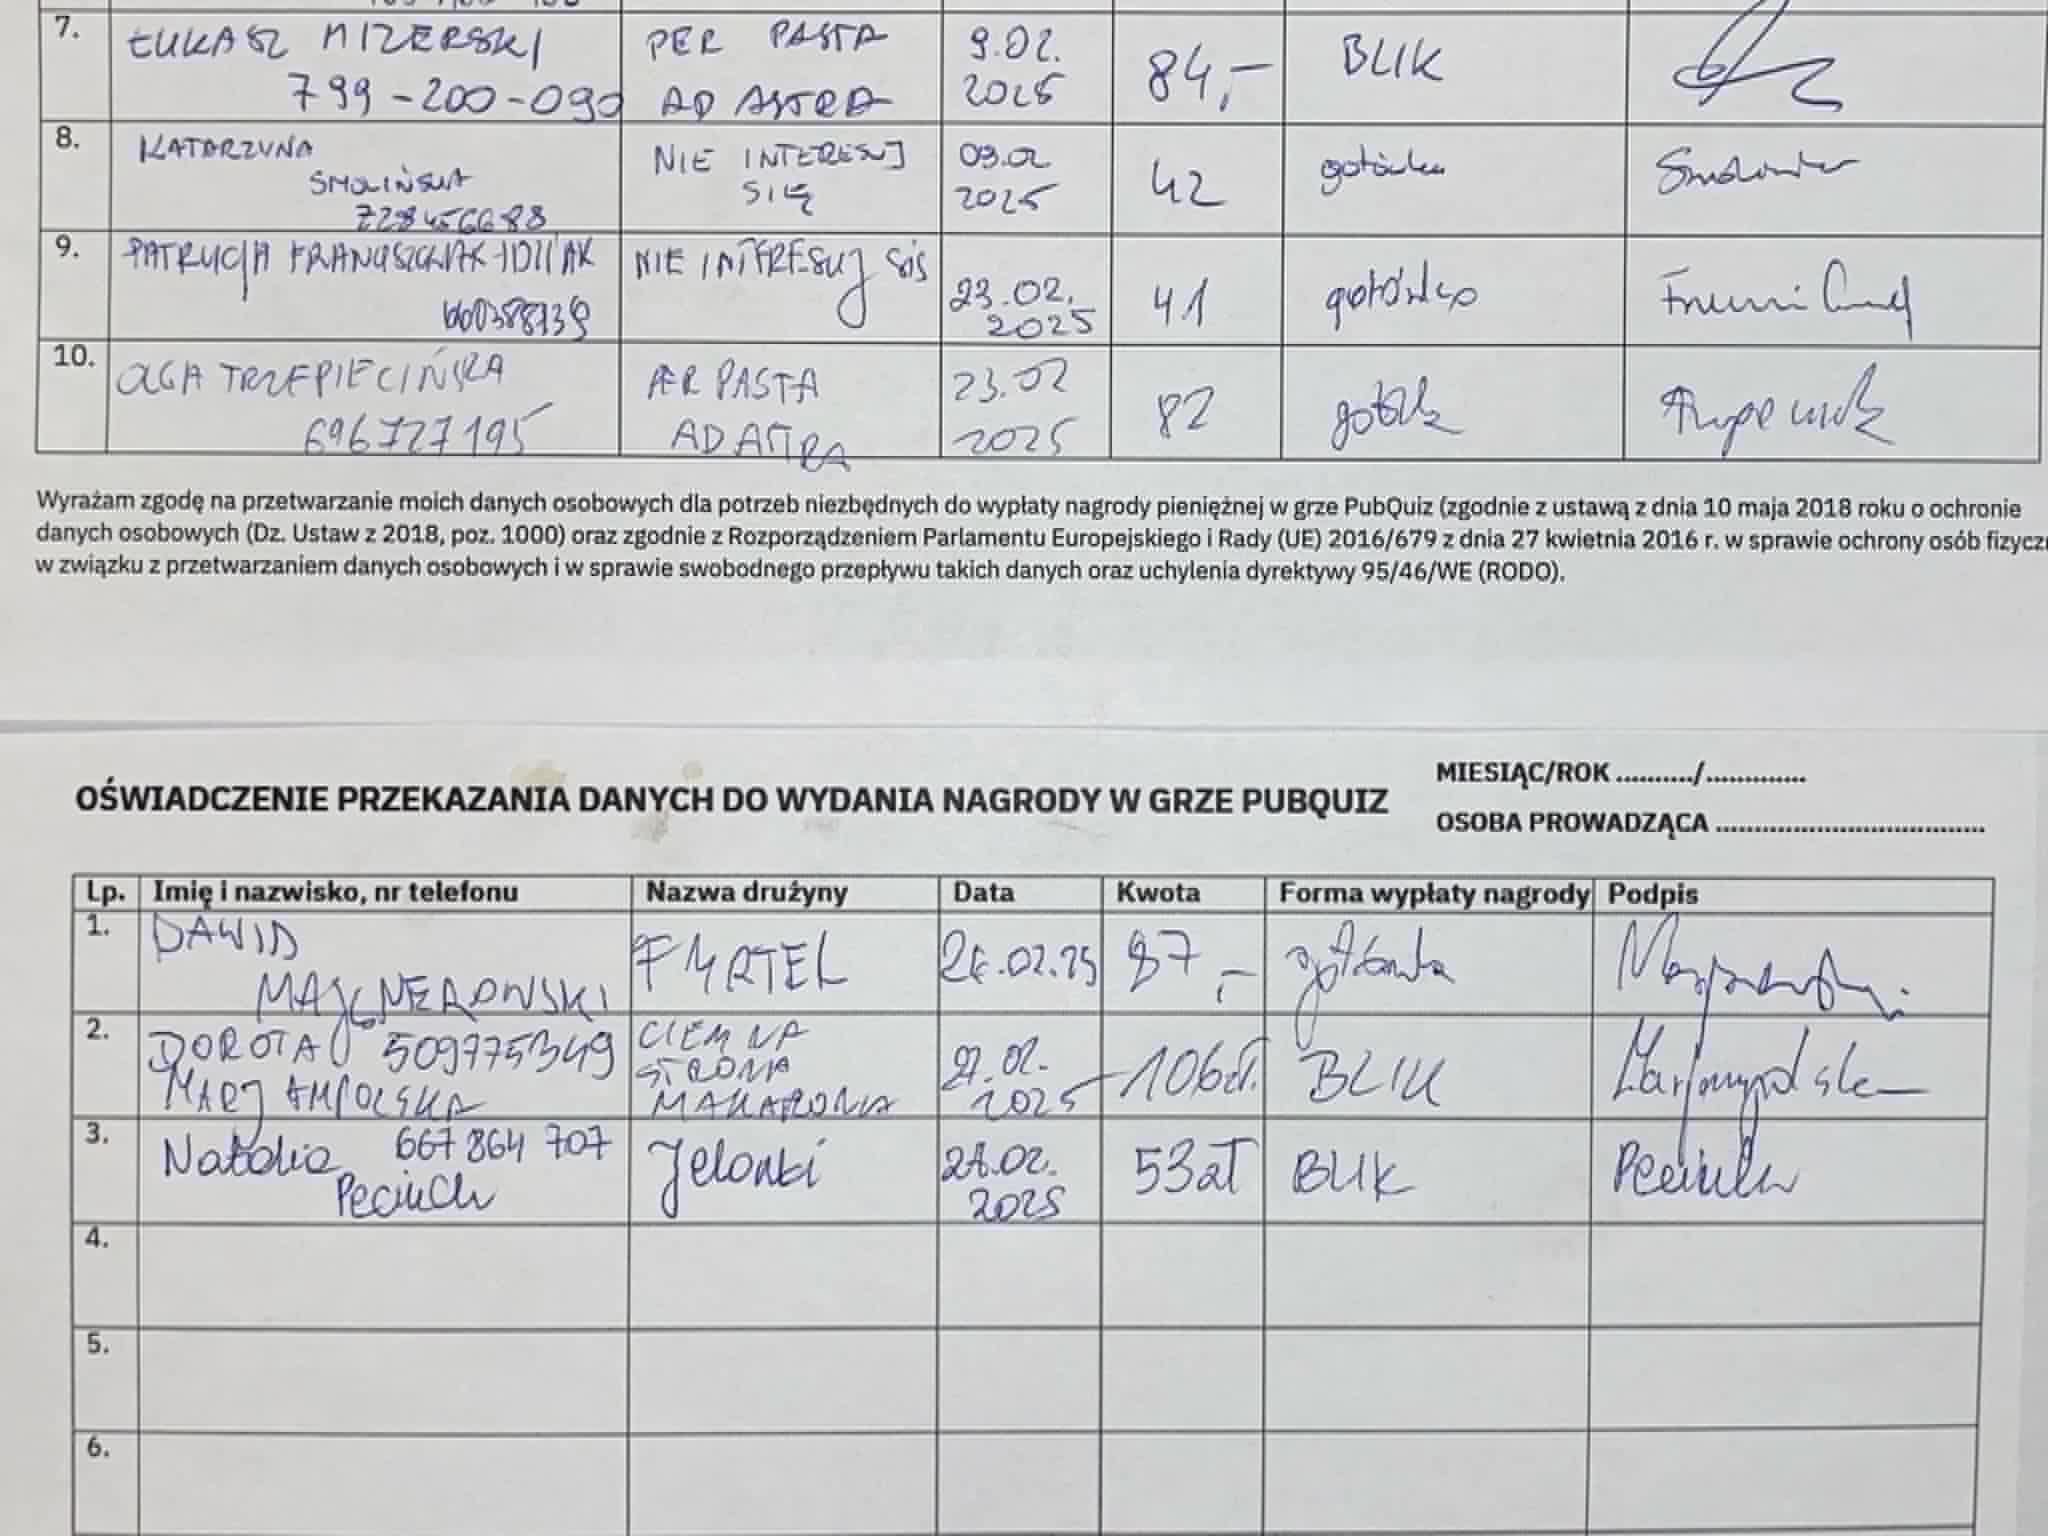 7.
ŁUKASZ MIZERSKI
799-200-090
PER PASTA
AD ASTRA
9.02.
2025
84,-
BLIK
8.
KATARZYNA
SMOLIŃSKA
728456688
NIE INTERESUJ
SIĘ
09.02
2025
42
gotówka
9.
PATRYCJA
660388739
NIE INTERESUJ SIĘ
23.02.
2025
41
gotówka
10.
OLGA TRZEPIECIŃSKA
696727195
PER PASTA
AD ASTRA
23.02
2025
82
Wyrażam zgodę na przetwarzanie moich danych osobowych dla potrzeb niezbędnych do wypłaty nagrody pieniężnej w grze PubQuiz (zgodnie z ustawą z dnia 10 maja 2018 roku o ochronie
danych osobowych (Dz. Ustaw z 2018, poz. 1000) oraz zgodnie z Rozporządzeniem Parlamentu Europejskiego i Rady (UE) 2016/679 z dnia 27 kwietnia 2016 r. w sprawie ochrony osób
w związku z przetwarzaniem danych osobowych i w sprawie swobodnego przepływu takich danych oraz uchylenia dyrektywy 95/46/WE (RODO).
OŚWIADCZENIE PRZEKAZANIA DANYCH DO WYDANIA NAGRODY W GRZE PUBQUIZ
MIESIĄC/ROK ........../.............
OSOBA PROWADZĄCA ...................................
Lp.
Imię i nazwisko, nr telefonu
Nazwa drużyny
Data
Kwota
Forma wypłaty nagrody
Podpis
1.
DAWID
MAJGNEROWSKI
FYRTEL
87,-
gotówka
2.
DOROTA 509775349
MARJAMPOLSKA
CIEMNA
STRONA
MAKARONA
2025
106zł.
BLIK
3.
Natalia 667 864 707
Peciuch
Jelonki
2025
53zł
BLIK
Peciuch
4.
5.
6.